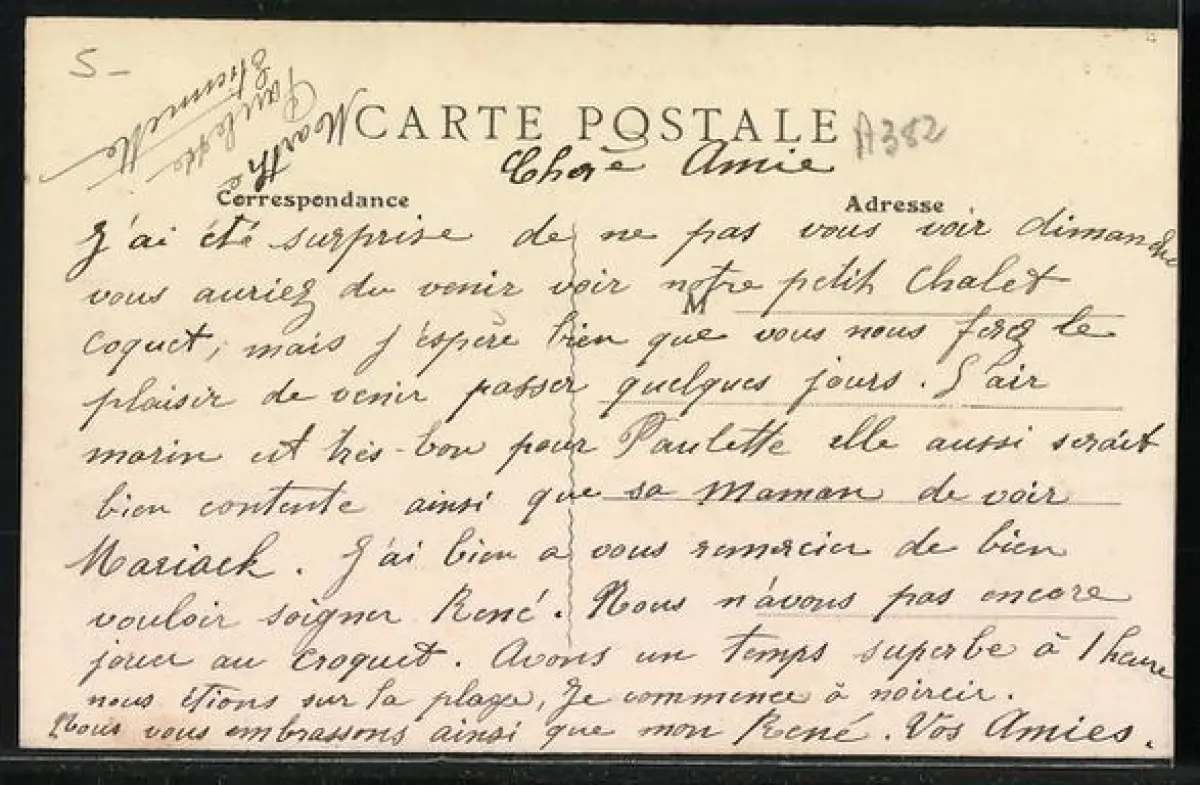 5-
Marthe
Paulette
Etiennette
CARTE POSTALE
A382
Chère Amie
Correspondance
Adresse
J'ai été surprise de ne pas vous voir dimanche
vous auriez du venir voir notre petit Chalet
M
coquet, mais j'éspère bien que vous nous ferez le
plaisir de venir passer quelques jours. L'air
marin est très-bon pour Paulette elle aussi serait
bien contente ainsi que sa Maman de voir
Mariack. J'ai bien a vous remercier de bien
vouloir soigner René. Nous n'avons pas encore
jouer au croquet. Avons un temps superbe à 1 heure
nous étions sur la plage, Je commence à noircir.
Nous vous embrassons ainsi que mon René. Vos Amies.